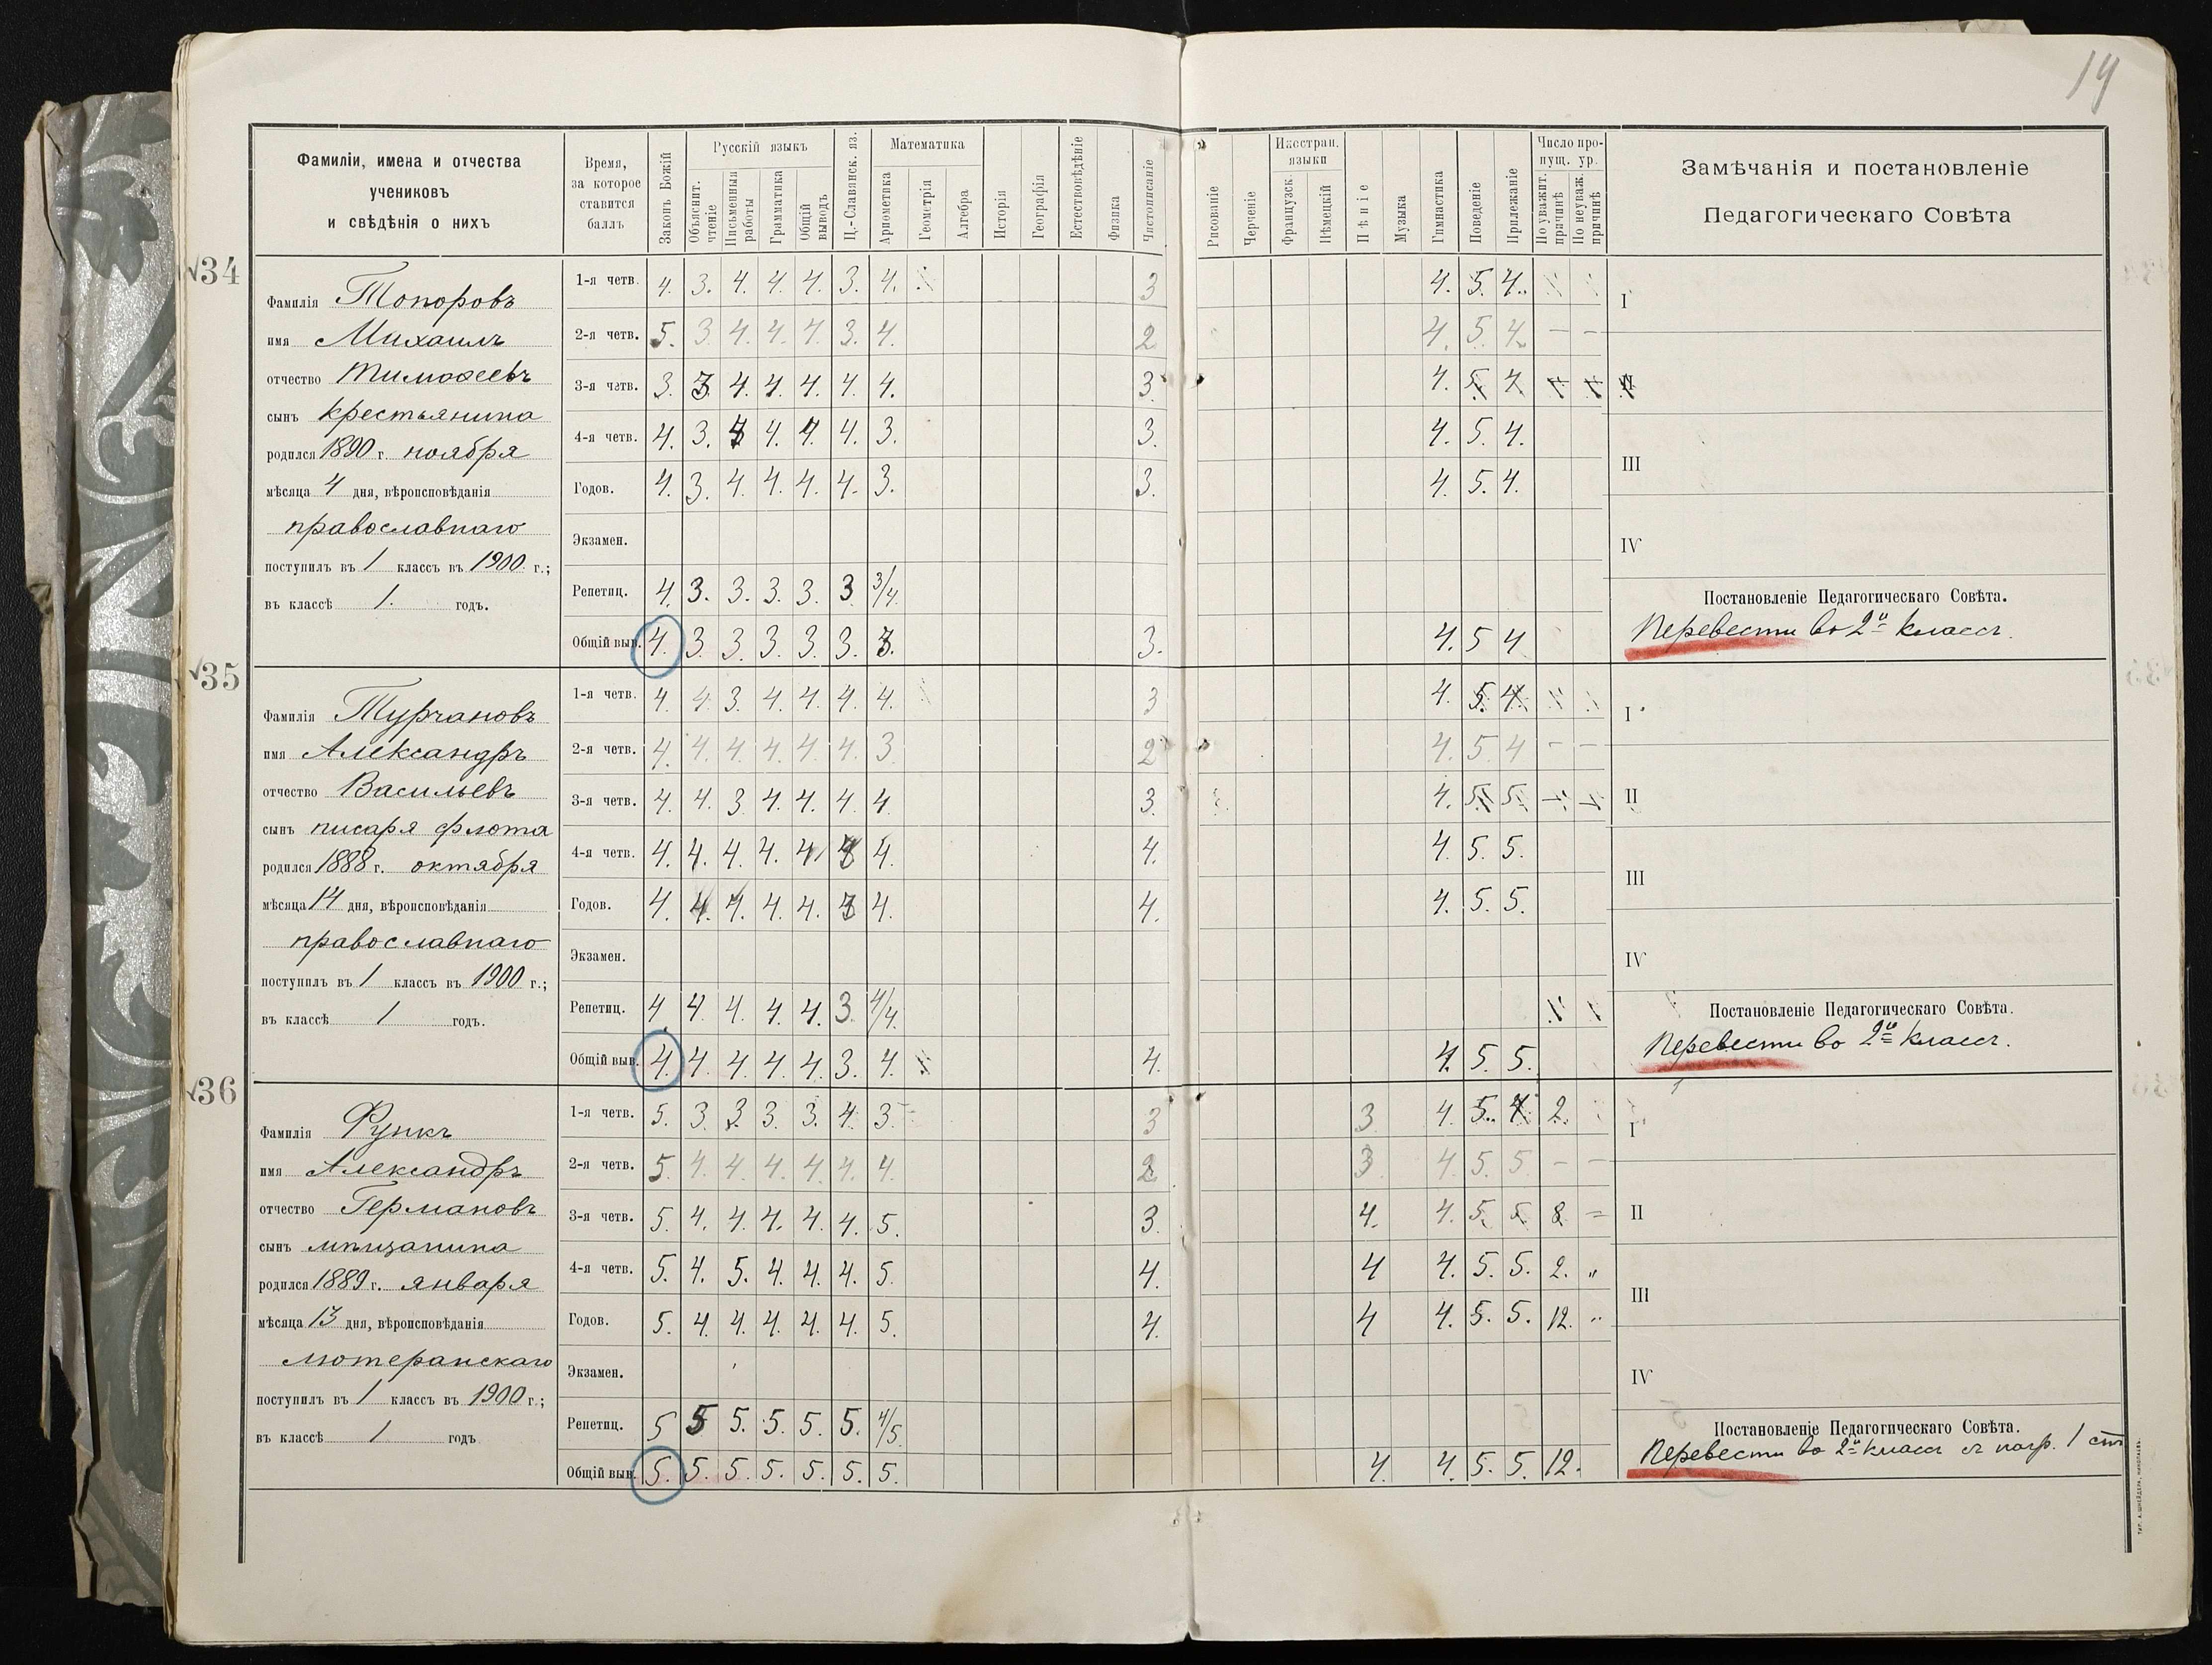 19
Фамиліи, имена и отчества
учениковъ
и свѣдѣнія о нихъ
Время,
за которое
ставится
баллъ
Законъ Божій
Русскій языкъ
Объяснит. чтеніе
Письменныя работы
Грамматика
Общій выводъ
Ц.-Славянск. яз.
Математика
Ариѳметика
Геометрія
Алгебра
Исторія
Географія
Естествовѣдѣніе
Физика
Чистописаніе
Рисованіе
Черченіе
Иностран. языки
Французск.
Нѣмецкій
Пѣніе
Музыка
Гимнастика
Поведеніе
Прилежаніе
Число пропущ. ур.
По уважит. причинѣ
По неуваж. причинѣ
Замѣчанія и постановленіе
Педагогическаго Совѣта
34
Фамилія Топоровъ
имя Михаилъ
отчество Тимоѳеевъ
сынъ крестьянина
родился 1890 г. ноября
мѣсяца 4 дня, вѣроисповѣданія
православнаго
поступилъ въ 1 классъ въ 1900 г.;
въ классѣ 1. годъ.
1-я четв. 4. 3. 4. 4. 4. 3. 4. 3 4. 5. 4.
2-я четв. 5. 3 4. 4. 4. 3. 4. 2 4. 5 4 — —
3-я четв. 3. 3 4. 4. 4. 4. 4. 3. 4. 5 4
4-я четв. 4. 3. 4. 4. 4. 3. 3. 4. 5. 4.
Годов. 4. 3. 4. 4. 4. 4. 3. 3. 4. 5. 4.
Экзамен.
Репетиц. 4. 3. 3. 3. 3. 3 3/4.
Общій выв. 4. 3 3. 3. 3. 3. 3. 3. 4. 5 4
I
II
III
IV
Постановленіе Педагогическаго Совѣта.
Перевести во 2й классъ.
35
Фамилія Турчановъ
имя Александръ
отчество Васильевъ
сынъ писаря флота
родился 1888 г. октября
мѣсяца 14 дня, вѣроисповѣданія
православнаго
поступилъ въ 1 классъ въ 1900 г.;
въ классѣ 1 годъ.
1-я четв. 4. 4 3. 4. 4. 4. 4. 3 4. 5. 4.
2-я четв. 4. 4. 4. 4. 4. 4. 3. 2 4. 5 4 — —
3-я четв. 4. 4. 3 4. 4. 4. 4. 3. 4. 5. 5.
4-я четв. 4. 4. 4. 4. 4 4. 4. 4. 5. 5.
Годов. 4. 4. 4. 4. 4. 4. 4. 4. 5. 5.
Экзамен.
Репетиц. 4 4. 4. 4. 4. 3. 4/4.
Общій выв. 4. 4. 4. 4. 4. 3. 4. 4. 4. 5. 5.
I
II
III
IV
Постановленіе Педагогическаго Совѣта.
Перевести во 2й классъ.
36
Фамилія Функъ
имя Александръ
отчество Германовъ
сынъ мѣщанина
родился 1889 г. января
мѣсяца 13 дня, вѣроисповѣданія
лютеранскаго
поступилъ въ 1 классъ въ 1900 г.;
въ классѣ 1 годъ
1-я четв. 5. 3. 3. 3. 3. 4. 3. 3 3 4. 5. 4 2.
2-я четв. 5. 4. 4. 4. 4. 4. 4. 2 3 4. 5. 5 — —
3-я четв. 5. 4. 4. 4. 4. 4. 5. 3. 4. 4. 5. 5. 8. =
4-я четв. 5. 4. 5. 4. 4. 4. 5. 4. 4 4. 5. 5. 2. "
Годов. 5. 4. 4. 4. 4. 4. 5. 4. 4 4. 5. 5. 12. "
Экзамен.
Репетиц. 5 5 5. 5. 5. 5. 4/5.
Общій выв. 5. 5. 5. 5. 5. 5. 5. 4. 4. 5. 5. 12.
I
II
III
IV
Постановленіе Педагогическаго Совѣта.
Перевести во 2й классъ съ нагр. 1 ст.
ТИП. А. ШНЕЙДЕРА, НИКОЛАЕВЪ.